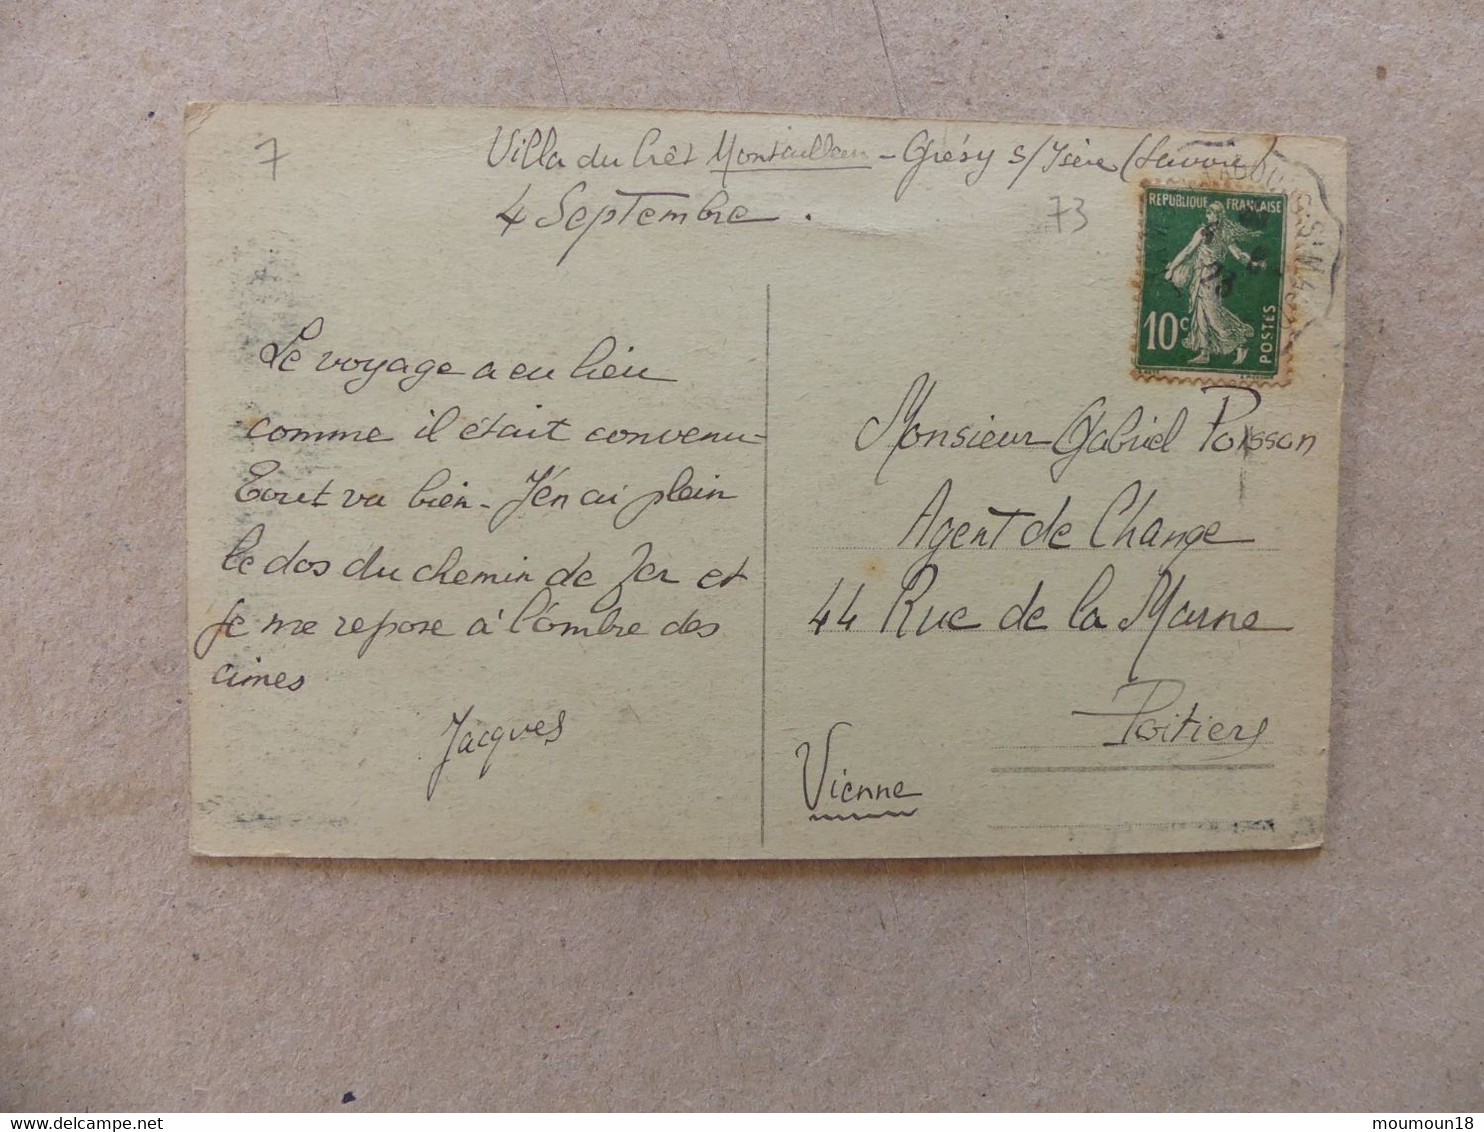 7
Villa du Crêt Montailleur - Grésy s/Isère (Savoie)
4 Septembre.
73
REPUBLIQUE FRANÇAISE
10c
POSTES
Le voyage a eu lieu
comme il était convenu-
Tout va bien - J'en ai plein
le dos du chemin de fer et
je me repose à l'ombre des
cimes
Jacques
Monsieur Gabriel Poisson
Agent de Change
44 Rue de la Marne
Poitiers
Vienne
moumoun18